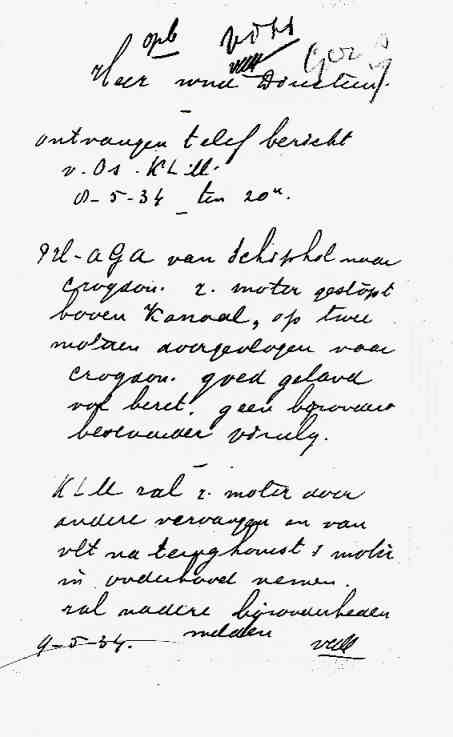 opb
Heer wnd Directeur.
ontvangen telef bericht
v. Os. KLM.
8-5-34 ten 20ᵘ.
PH-AGA van Schiphol naar
Croydon. r. motor gestopt
boven Kanaal, op twee
motoren doorgevlogen naar
Croydon. goed geland
geen bijzonders
KLM zal r. motor door
andere vervangen en van
vlt na terugkomst s motor
in onderhoud nemen.
zal nadere bijzonderheden
melden
9-5-34.